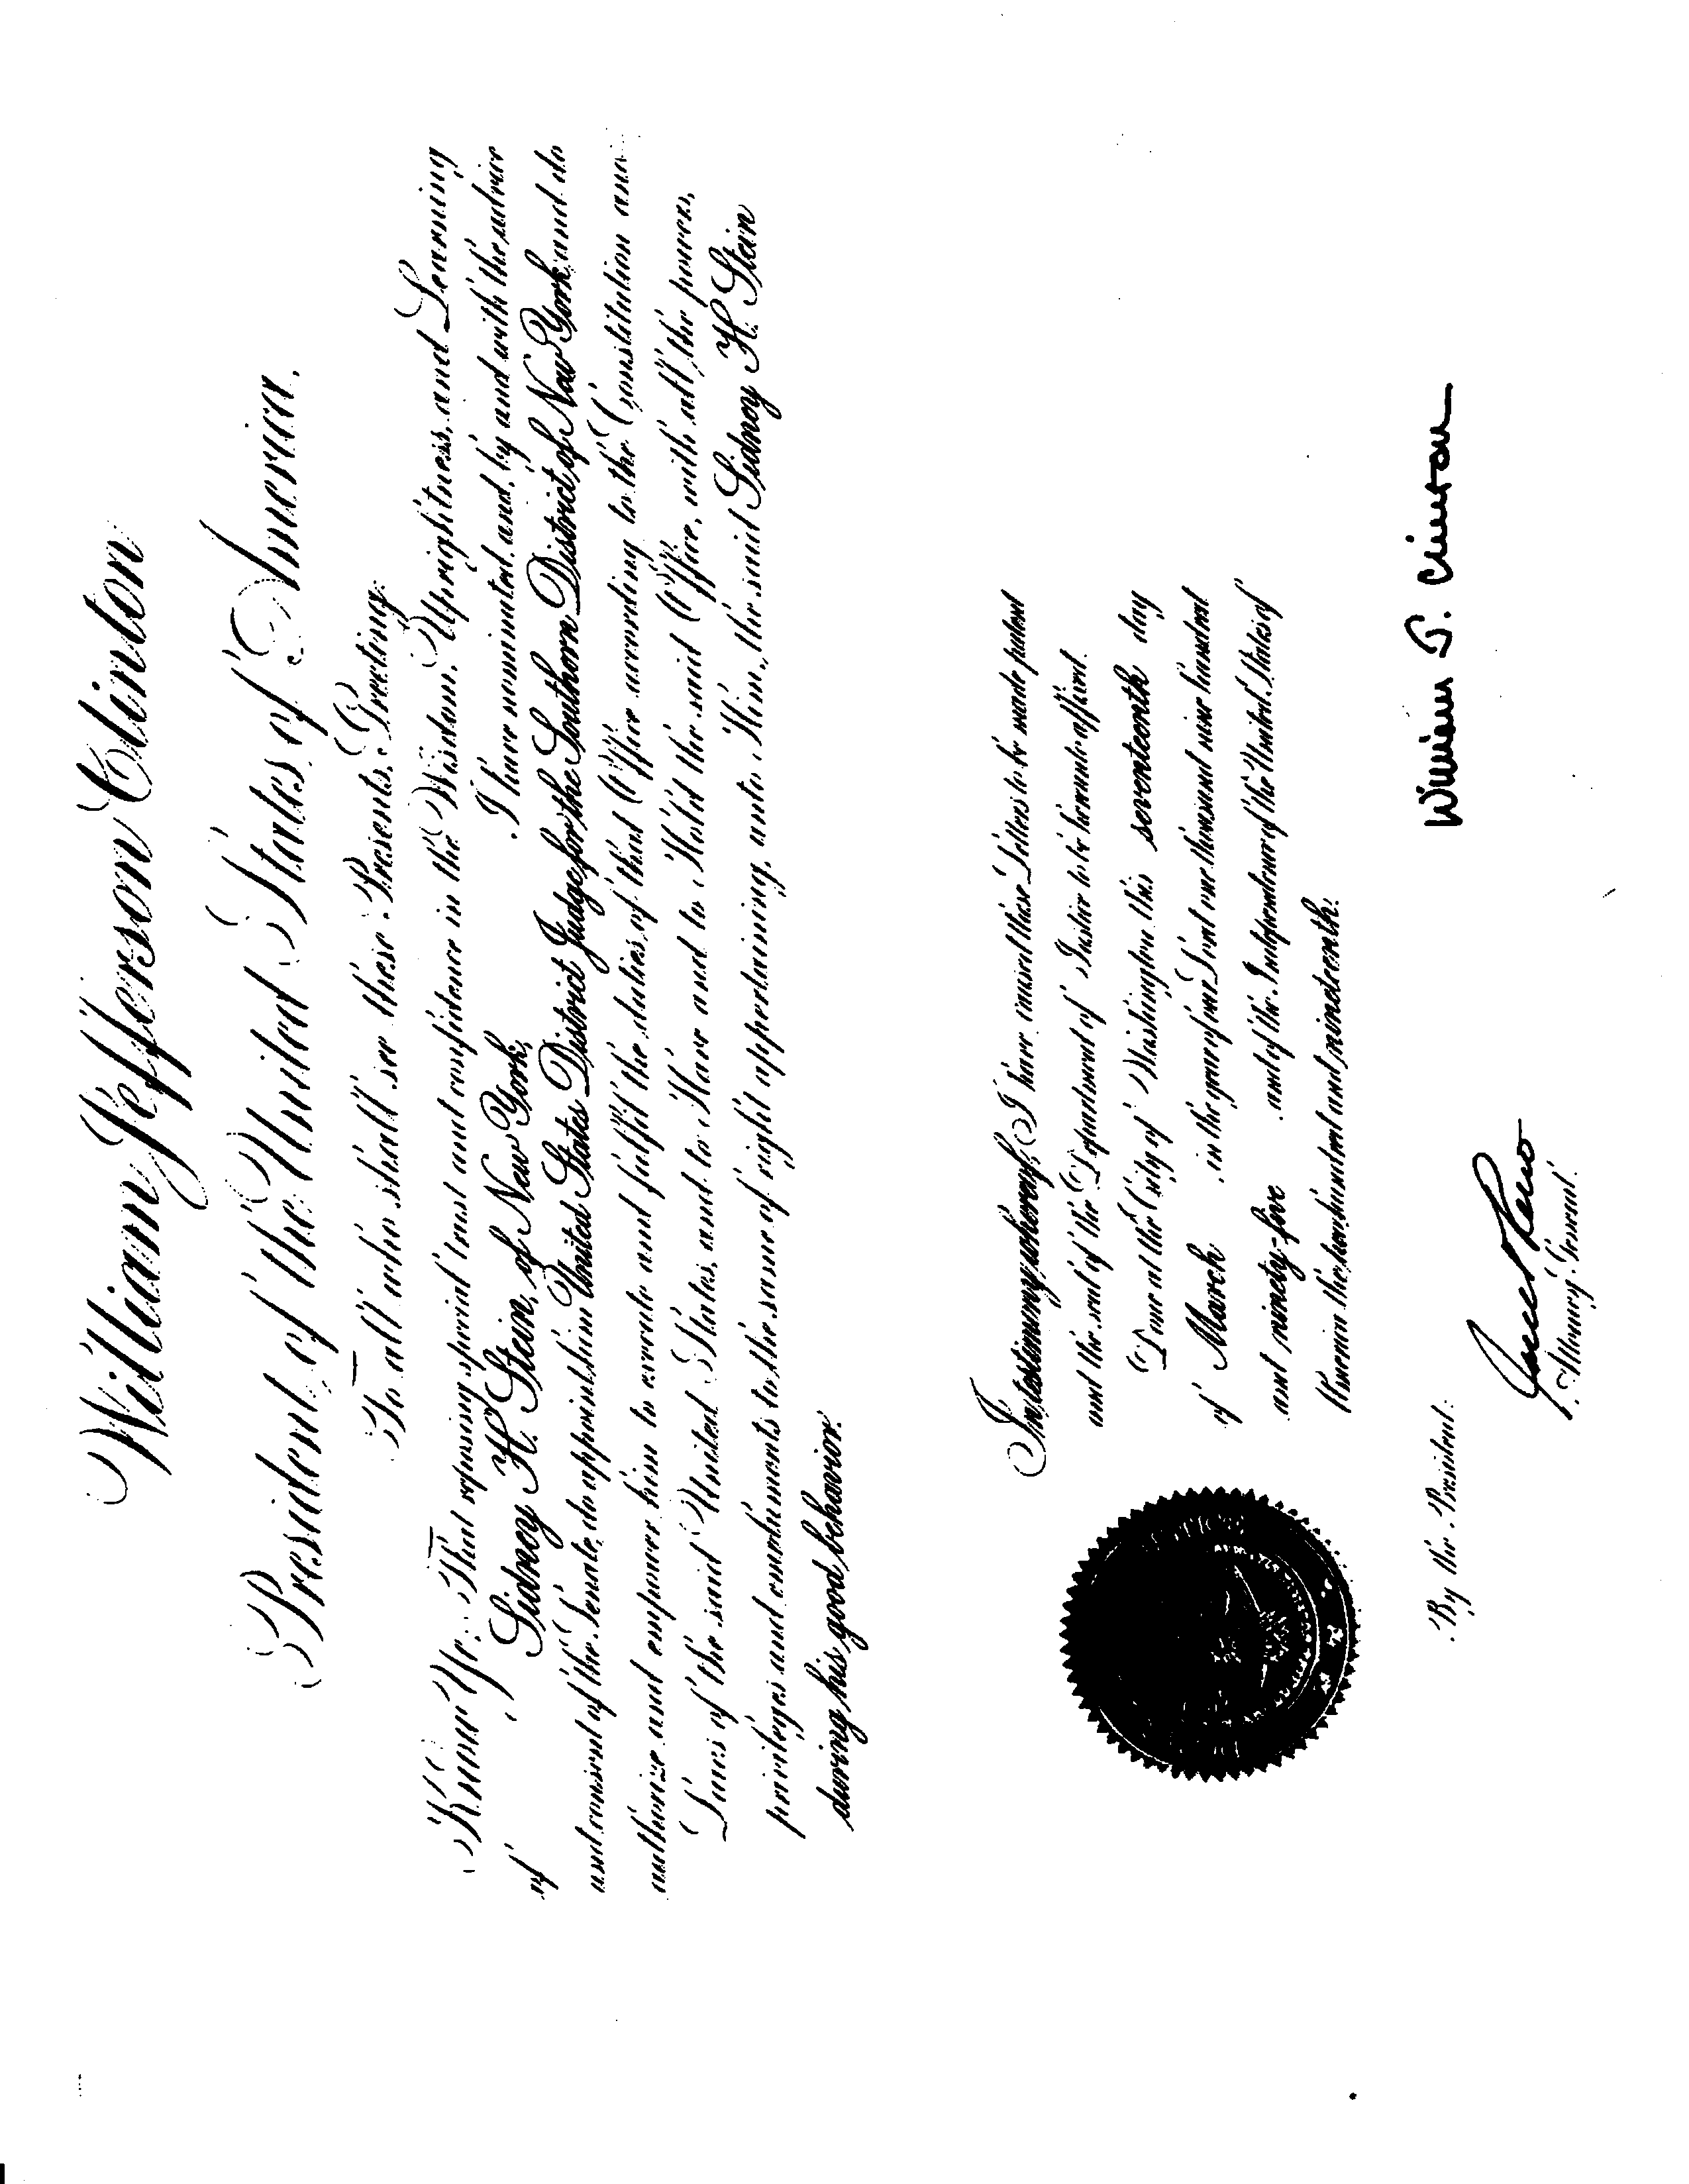 William Jefferson Clinton
President of the United States of America.
To all who shall see these Presents, Greeting:
Know Ye; That reposing special trust and confidence in the Wisdom, Uprightness, and Learning
of Sidney H. Stein, of New York, I have nominated, and, by and with the advice
and consent of the Senate, do appoint him United States District Judge for the Southern District of New York, and do
authorize and empower him to execute and fulfil the duties of that Office according to the Constitution and
Laws of the said United States, and to Have and to Hold the said Office, with all the powers,
privileges and emoluments to the same of right appertaining, unto Him, the said Sidney H. Stein
during his good behavior.
In testimony whereof, I have caused these Letters to be made patent
and the seal of the Department of Justice to be hereunto affixed.
Done at the City of Washington this seventeenth day
of March in the year of our Lord one thousand nine hundred
and ninety-five and of the Independence of the United States of
America the two hundred and nineteenth.
William J. Clinton
By the President:
Janet Reno
Attorney General.